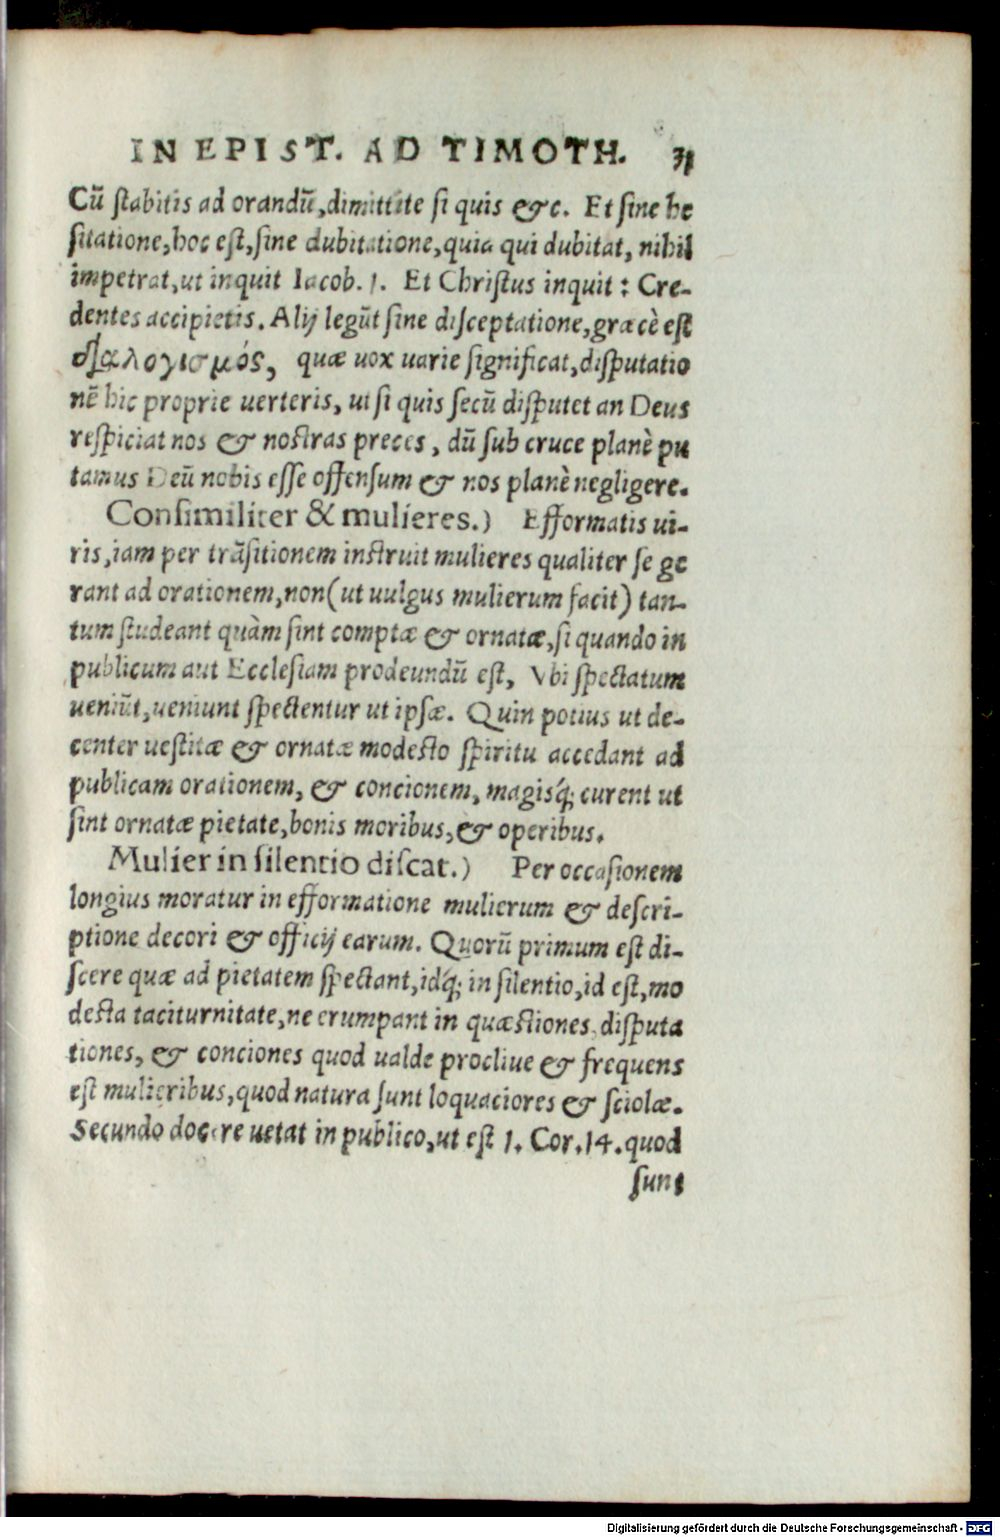 IN EPIST. AD TIMOTH. 31
Cū ſtabitis ad orandū, dimittite ſi quis &c. Et ſine he
ſitatione, hoc eſt, ſine dubitatione, quia qui dubitat, nihil
impetrat, ut inquit Iacob. 1. Et Chriſtus inquit: Cre-
dentes accipietis. Alij legūt ſine diſceptatione, græcè eſt
διαλογισμός, quæ uox uarie ſignificat, diſputatio
nē hic proprie uerteris, ut ſi quis ſecū diſputet an Deus
reſpiciat nos & noſtras preces, dū ſub cruce planè pu
tamus Deū nobis eſſe offenſum & nos planè negligere.
Conſimiliter & mulieres.) Efformatis ui-
ris, iam per trāſitionem inſtruit mulieres qualiter ſe ge
rant ad orationem, non (ut uulgus mulierum facit) tan-
tum ſtudeant quàm ſint comptæ & ornatæ, ſi quando in
publicum aut Eccleſiam prodeundū eſt, Vbi ſpectatum
ueniūt, ueniunt ſpectentur ut ipſæ. Quin potius ut de-
center ueſtitæ & ornatæ modeſto ſpiritu accedant ad
publicam orationem, & concionem, magisq́; curent ut
ſint ornatæ pietate, bonis moribus, & operibus.
Mulier in ſilentio diſcat.) Per occaſionem
longius moratur in efformatione mulierum & deſcri-
ptione decori & officij earum. Quorū primum eſt di-
ſcere quæ ad pietatem ſpectant, idq́; in ſilentio, id eſt, mo
deſta taciturnitate, ne erumpant in quæſtiones, diſputa
tiones, & conciones quod ualde procliue & frequens
eſt mulieribus, quod natura ſunt loquaciores & ſciolæ.
Secundo docere uetat in publico, ut eſt 1. Cor. 14. quod
ſunt
Digitalisierung gefördert durch die Deutsche Forschungsgemeinschaft - DFG